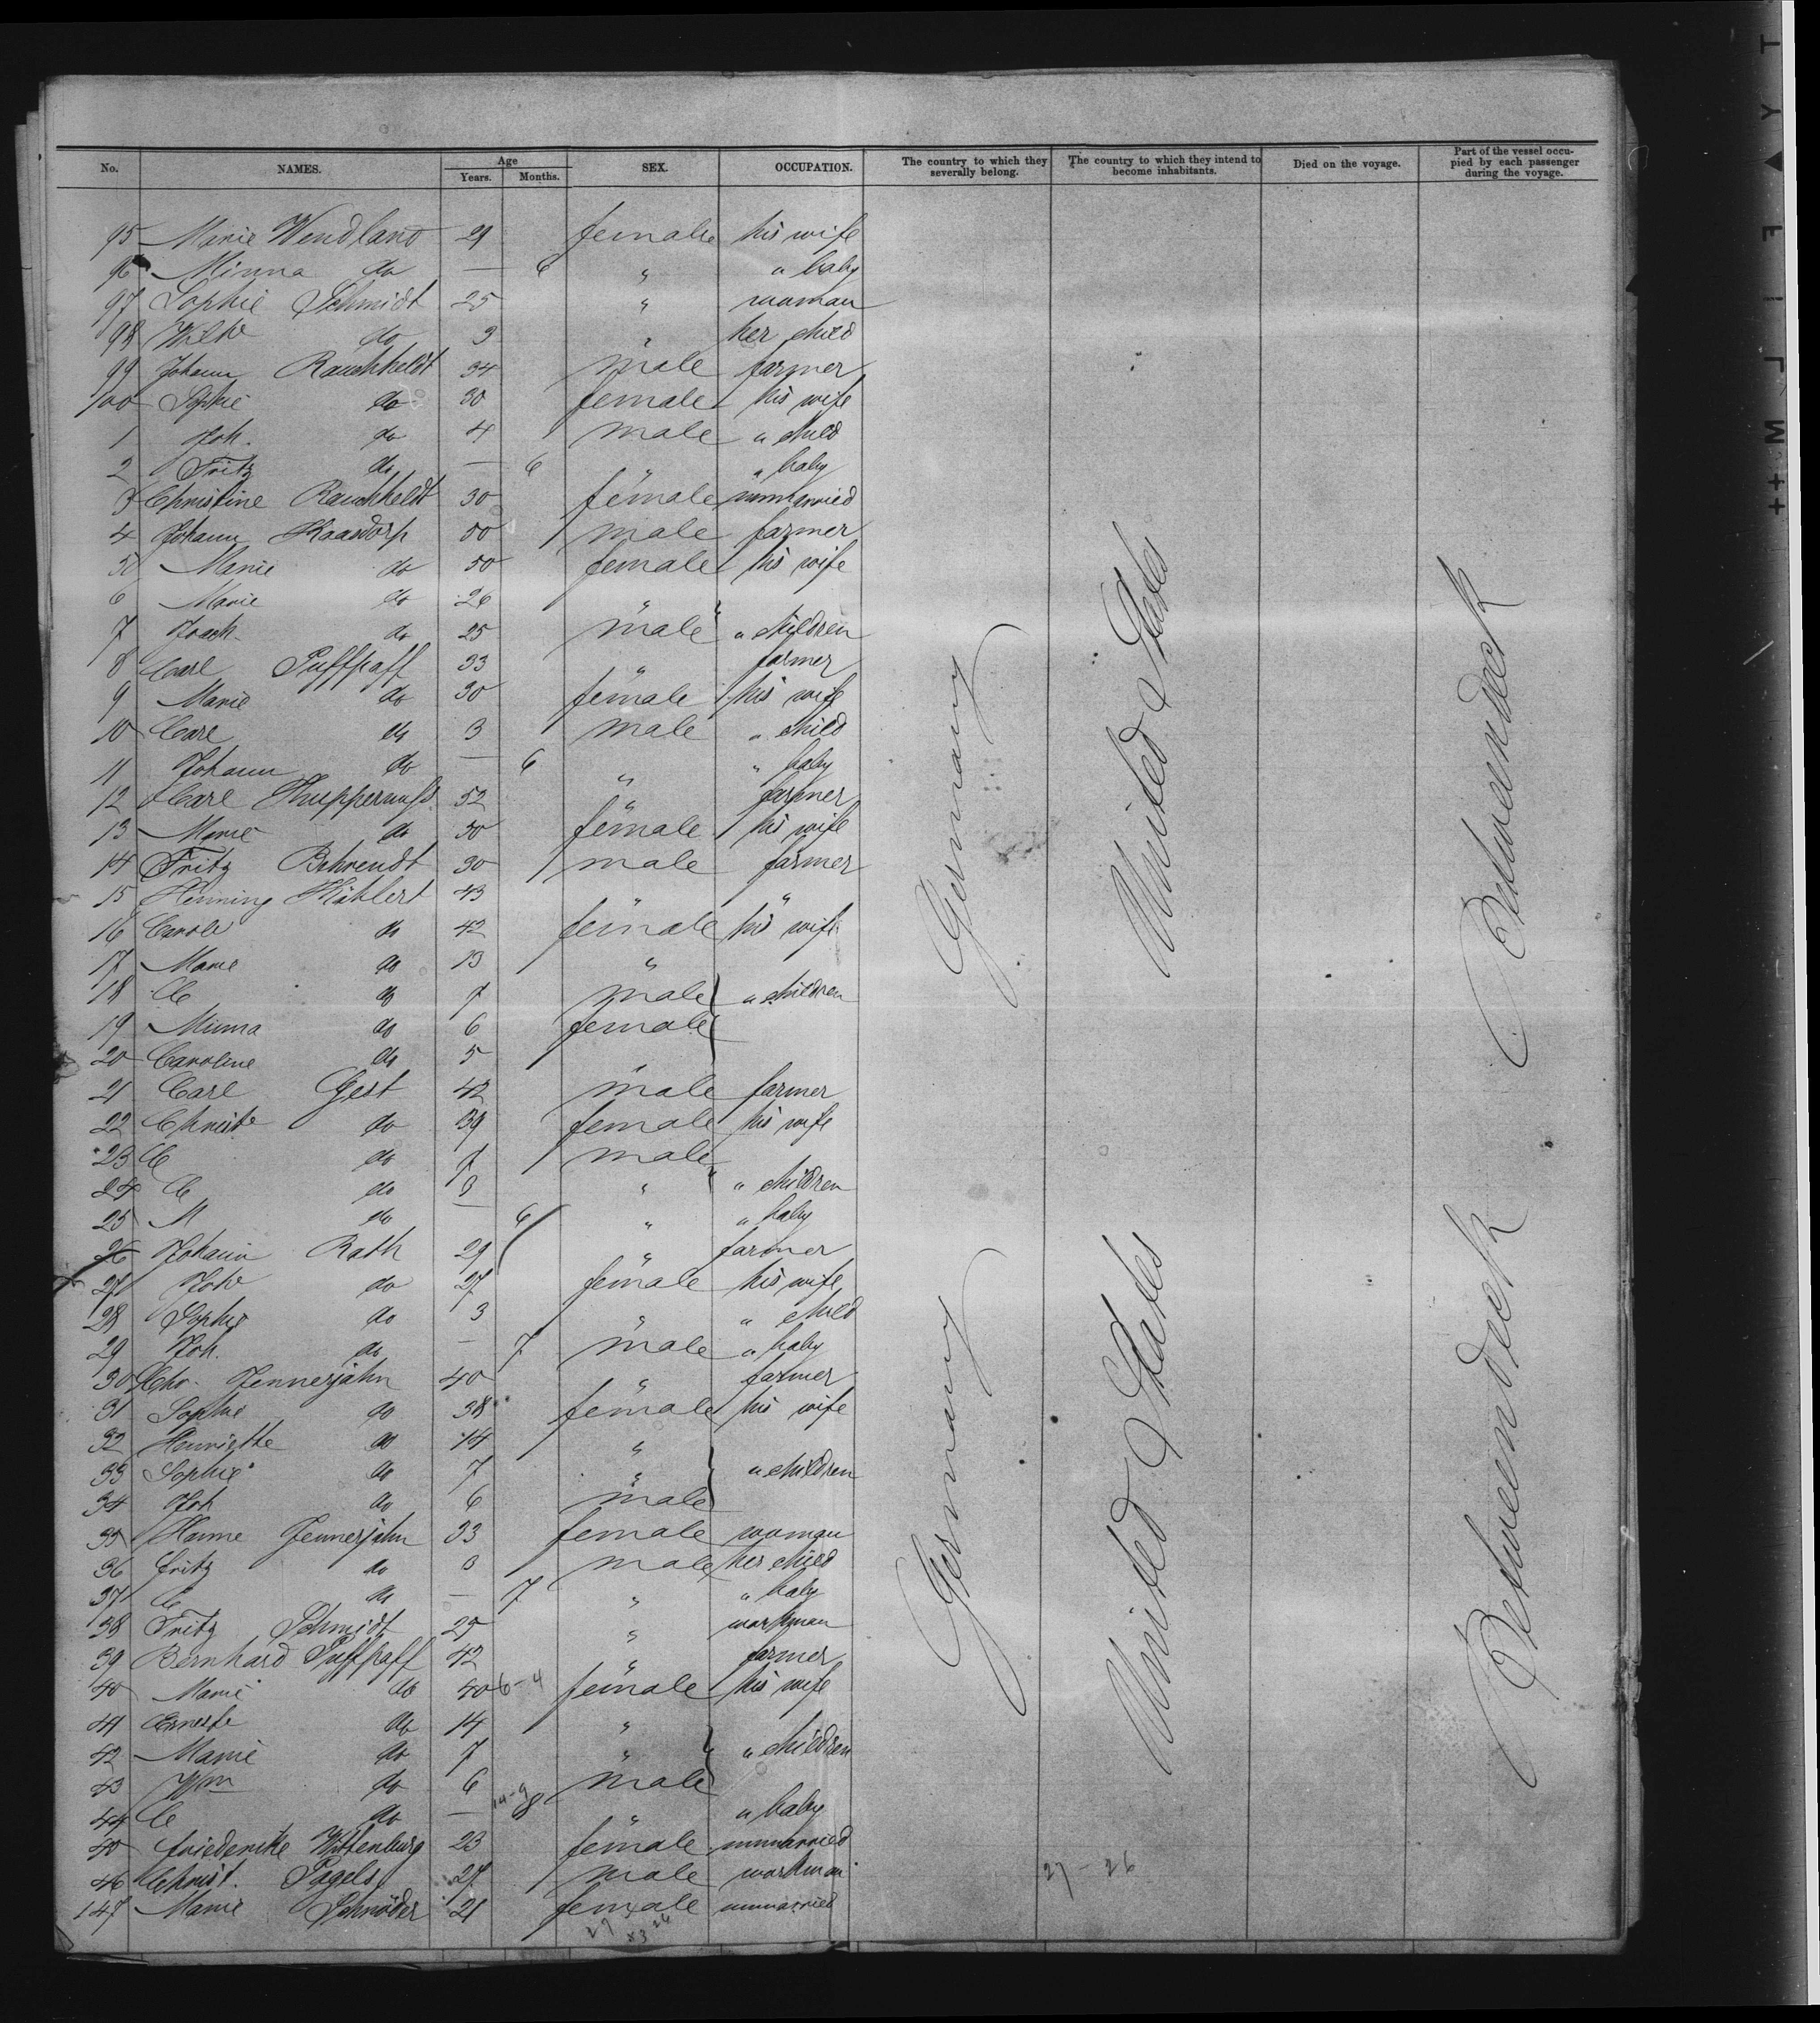 No. NAMES. Age Years. Months. SEX. OCCUPATION. The country to which they severally belong. The country to which they intend to become inhabitants. Died on the voyage. Part of the vessel occupied by each passenger during the voyage.
95 Marie Wendland 29 female his wife
96 Minna do — 6 " " baby
97 Sophie Schmidt 25 " woman
98 Wilh do 3 " her child
99 Johann Rauchheldt 34 male farmer
100 Sophie do 30 female his wife
1 Joh. do 4 male " child
2 Fritz do — 6 " " baby
3 Christine Rauchheldt 30 female unmarried
4 Johann Haasdorp 50 male farmer
5 Marie do 50 female his wife
6 Marie do 26 "
7 Joach do 25 male " children
8 Carl Puffpaff 33 " farmer
9 Marie do 30 female his wife
10 Carl do 3 male " child
11 Johann do — 6 " " baby
12 Carl 52 " farmer
13 Marie do 50 female his wife
14 Fritz Behrendt 30 male farmer
15 Henning Köhlert 43 " "
16 Carole do 42 female his wife
17 Marie do 13 "
18 C do 7 male " children
19 Minna do 6 female
20 Caroline do 5 "
21 Carl Gest 42 male farmer
22 Christe do 39 female his wife
23 C do 7 male
24 C do 3 " " children
25 M do — 6 " " baby
26 Johann Rath 29 " farmer
27 Joh do 27 female his wife
28 Sophie do 3 " " child
29 Joh. do — 7 male " baby
30 Chr. Jennerjahn 40 " farmer
31 Sophie do 38 female his wife
32 Henriette do 14 "
33 Sophie do 7 " " children
34 Joh do 6 male
35 Hanne Jennerjahn 33 female woman
36 Fritz do 3 male her child
37 C do — 7 " " baby
38 Fritz Schmidt 25 " workman
39 Bernhard Puffpaff 42 " farmer
40 Marie do 40 6-4 female his wife
41 Erneste do 14 "
42 Marie do 7 " " children
43 Wm do 6 male
44 C do — 8 " " baby
45 Friederike Wittenburg 23 female unmarried
46 Christ. Pagels 27 male workman
147 Marie Schröder 21 female unmarried
Germany
United States
Betweendeck
Germany
United States
Betweendeck
27 - 26